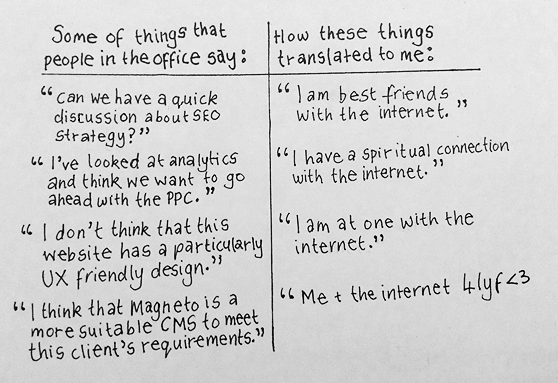 Some of things that
people in the office say:
"Can we have a quick
discussion about SEO
strategy?"
"I've looked at analytics
and think we want to go
ahead with the PPC."
"I don't think that this
website has a particularly
UX friendly design."
"I think that Magneto is a
more suitable CMS to meet
this client's requirements."
How these things
translated to me:
"I am best friends
with the internet."
"I have a spiritual connection
with the internet."
"I am at one with the
internet."
"Me + the internet 4lyf<3